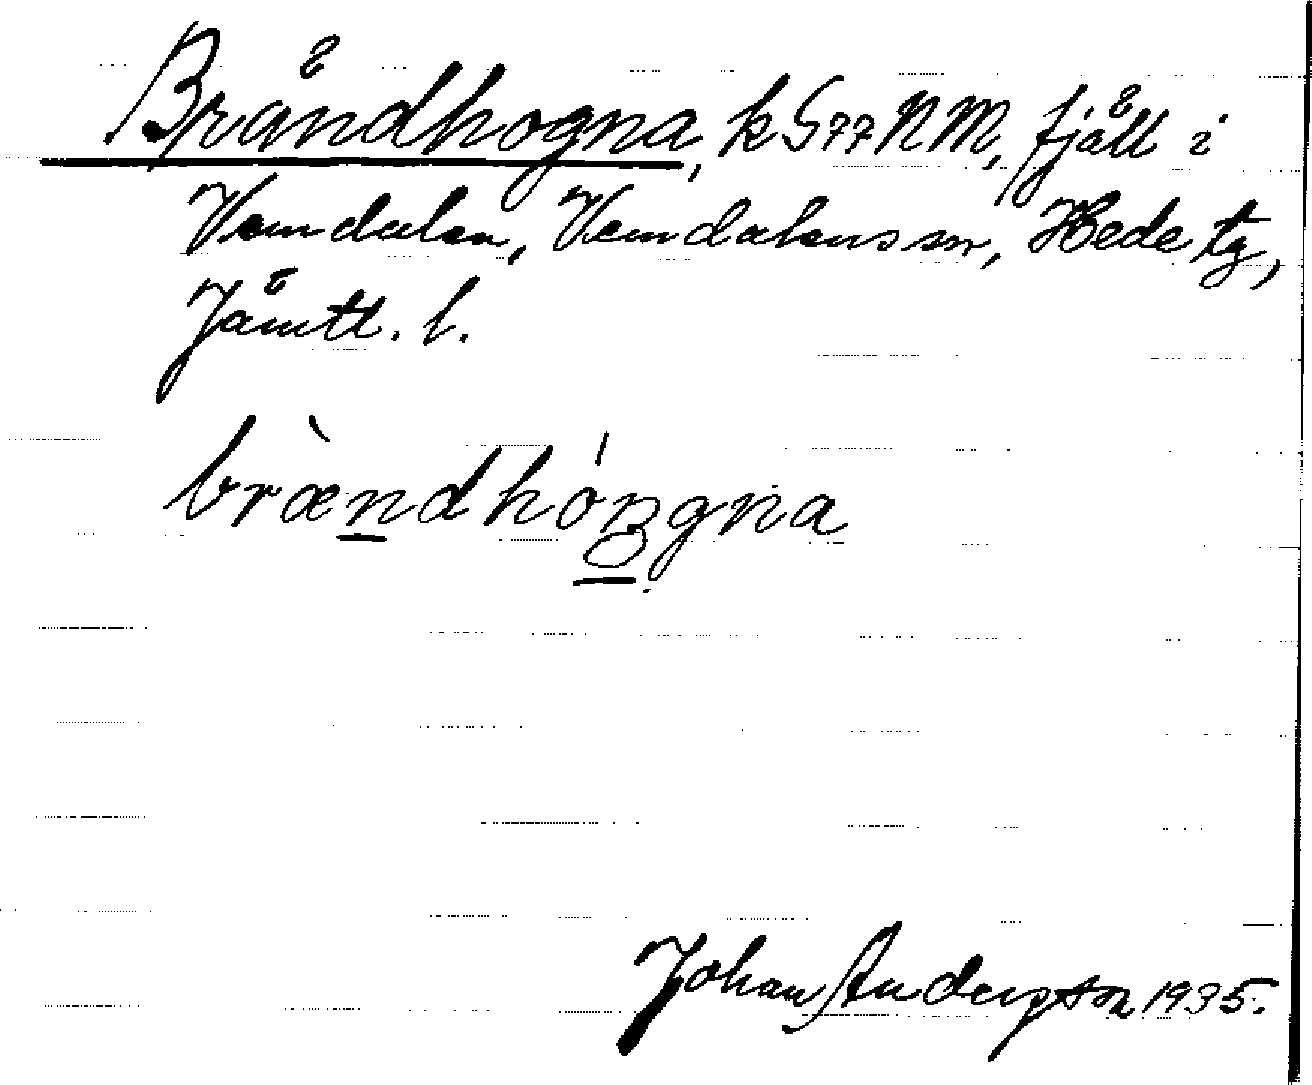 Brändhogna, k G77 NM, fjäll i
Vemdalen, Vemdalens sn, Hede tg,
Jämtt. l.
bræ̀ndhóŋgna
Johan Anderzon 1935.